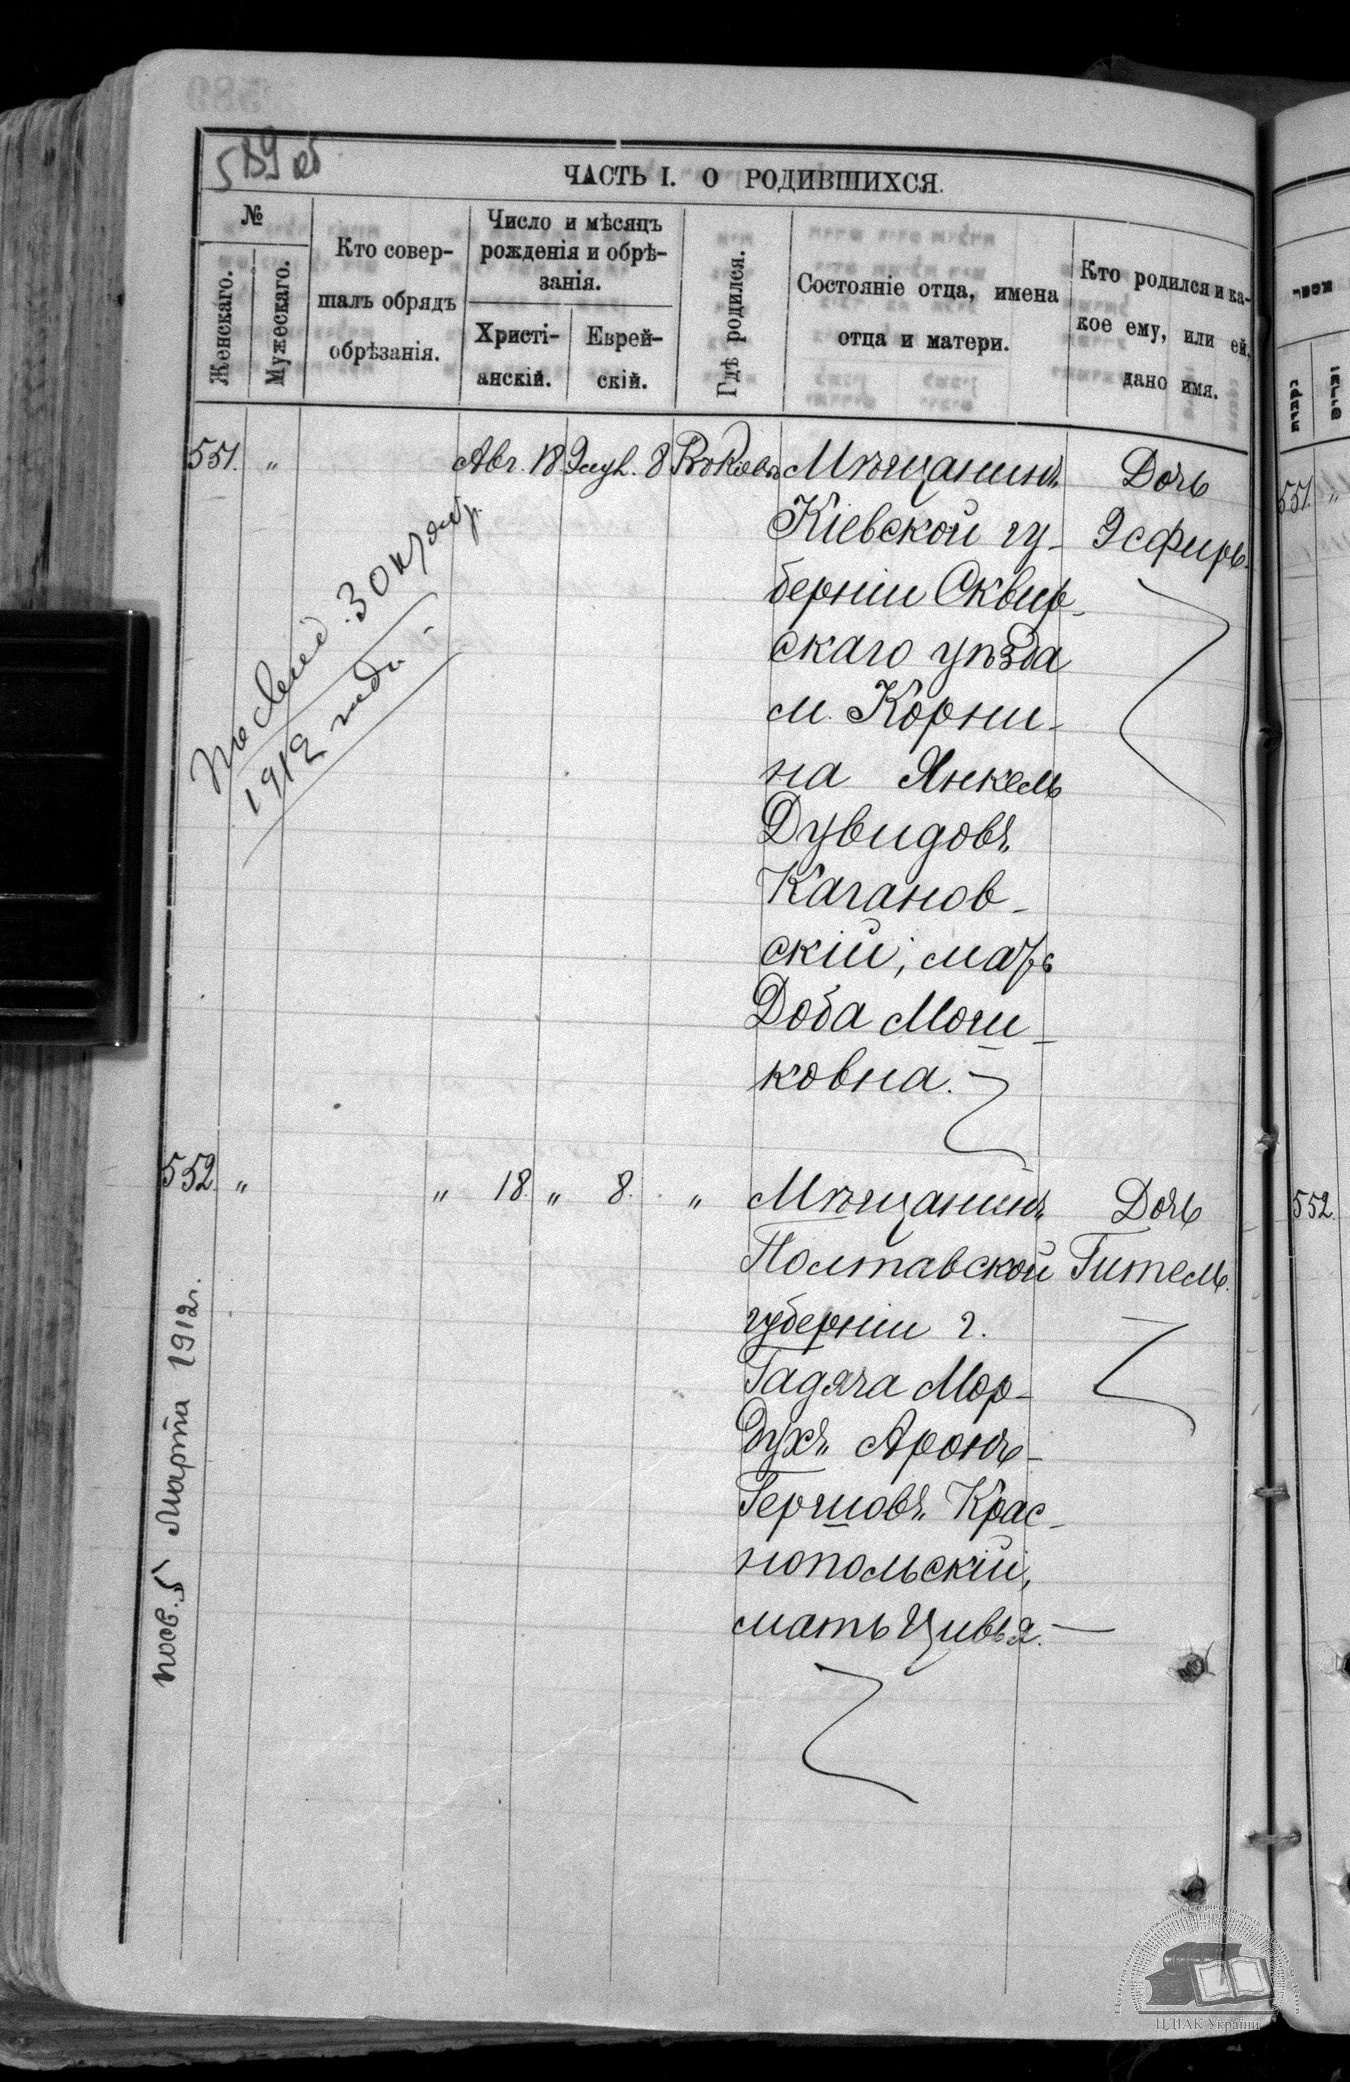 589 об
ЧАСТЬ I. О РОДИВШИХСЯ.
№
Женскаго.
Мужескаго.
Кто совер-
шалъ обрядъ
обрѣзанія.
Число и мѣсяцъ
рожденія и обрѣ-
занія.
Христі-
анскій.
Еврей-
скій.
Гдѣ родился.
Состояніе отца, имена
отца и матери.
Кто родился и ка-
кое ему, или ей,
дано имя.
551. " Авг. 18. Элул. 8 Въ Кіевѣ Мѣщанинъ
Кіевской гу-
берніи Сквир-
скаго уѣзда
м. Корни-
на Янкель
Дувидовъ
Каганов-
скій, мать
Доба Моши-
ковна.
Дочь
Эсфирь.
1912 года
552. " " 18. " 8. " Мѣщанинъ
Полтавской
губерніи г.
Гадяча Мор-
духъ Аронъ-
Гершовъ Крас-
нопольскій,
мать Цивья.
Дочь
Гитель.
посв. 5 Марта 1912 г.
551. "
552.
נקבות
זכרים
מספר
ЦДІАК України